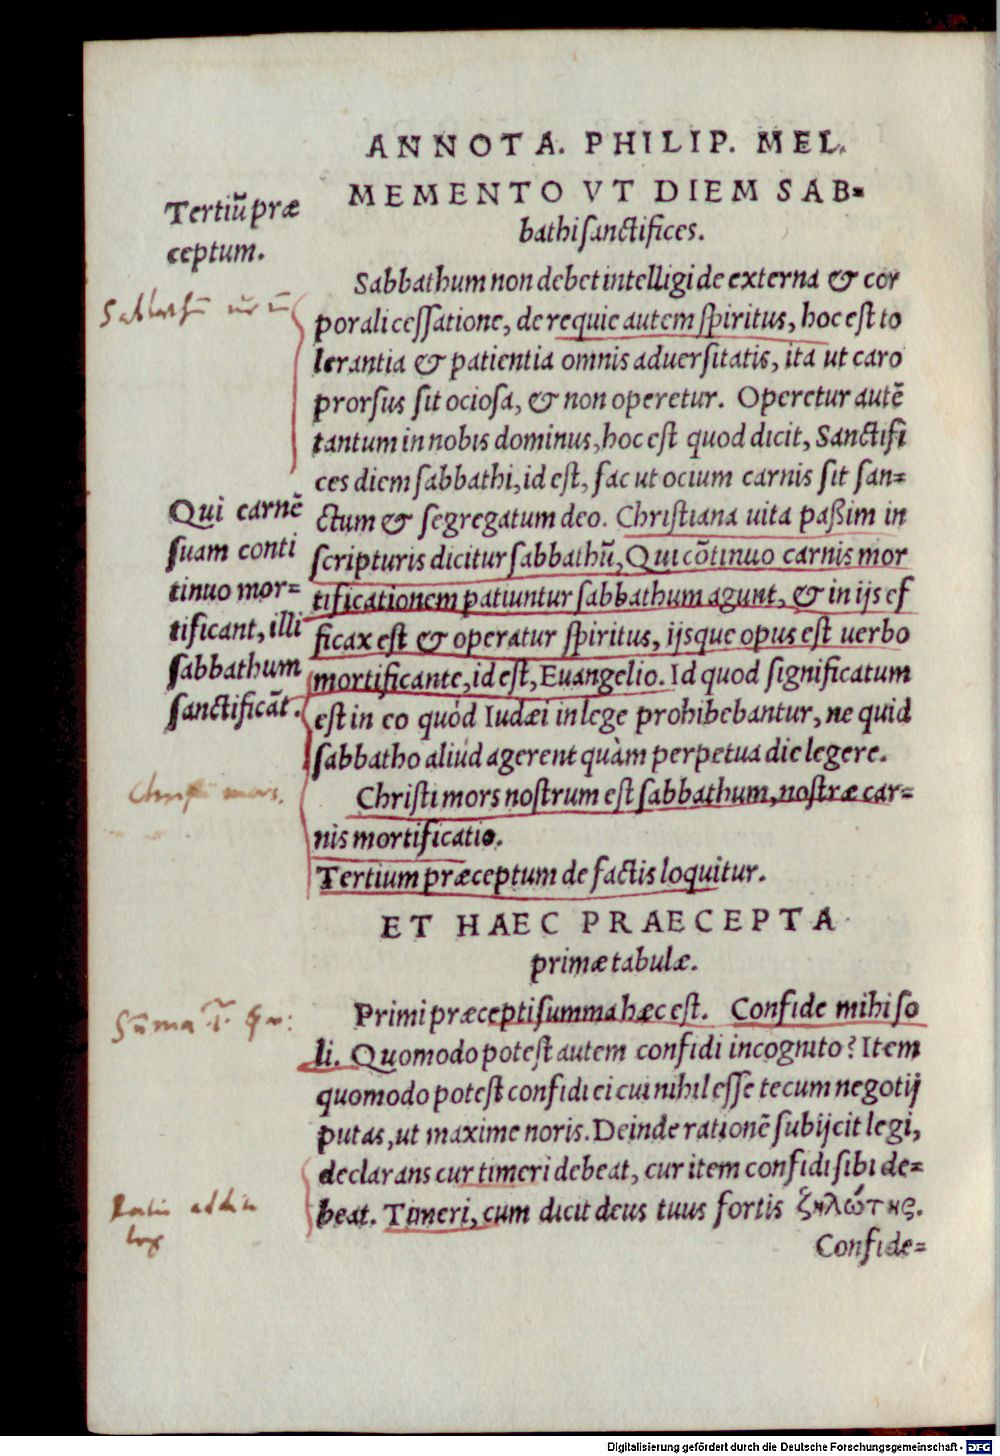 ANNOTA. PHILIP. MEL.
MEMENTO VT DIEM SAB=
bathi sanctifices.
Tertiũ præ
ceptum.
Sabbathum non debet intelligi de externa & cor
porali cessatione, de requie autem spiritus, hoc est to
lerantia & patientia omnis aduersitatis, ita ut caro
prorsus sit ociosa, & non operetur. Operetur autẽ
tantum in nobis dominus, hoc est quod dicit, Sanctifi
ces diem sabbathi, id est, fac ut ocium carnis sit san=
ctum & segregatum deo. Christiana uita paßim in
scripturis dicitur sabbathũ, Qui cõtinuo carnis mor
tificationem patiuntur sabbathum agunt, & in ijs ef
ficax est & operatur spiritus, ijsque opus est uerbo
mortificante, id est, Euangelio. Id quod significatum
est in eo quód Iudæi in lege prohibebantur, ne quid
sabbatho aliud agerent quàm perpetua die legere.
Qui carnẽ
suam conti
tinuo mor=
tificant, illi
sabbathum
sanctificãt.
Christi mors nostrum est sabbathum, nostræ car=
nis mortificatio.
Christi mors.
Tertium præceptum de factis loquitur.
ET HAEC PRAECEPTA
primæ tabulæ.
Primi præcepti summa hæc est. Confide mihi so
li. Quomodo potest autem confidi incognito? Item
quomodo potest confidi ei cui nihil esse tecum negotij
putas, ut maxime noris. Deinde rationẽ subijcit legi,
declarans cur timeri debeat, cur item confidi sibi de=
beat. Timeri, cum dicit deus tuus fortis ζηλώτης.
Confide=
Digitalisierung gefördert durch die Deutsche Forschungsgemeinschaft - DFG